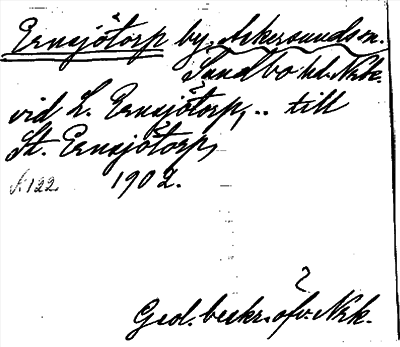 Ernsjötorp by, Askersunds sn.
Sundbo hd. Nrk.
vid L. Ernsjötorp, .. till
St. Ernsjötorp,
S. 122. 1902.
Geol. beskr. öfv. Nrk.